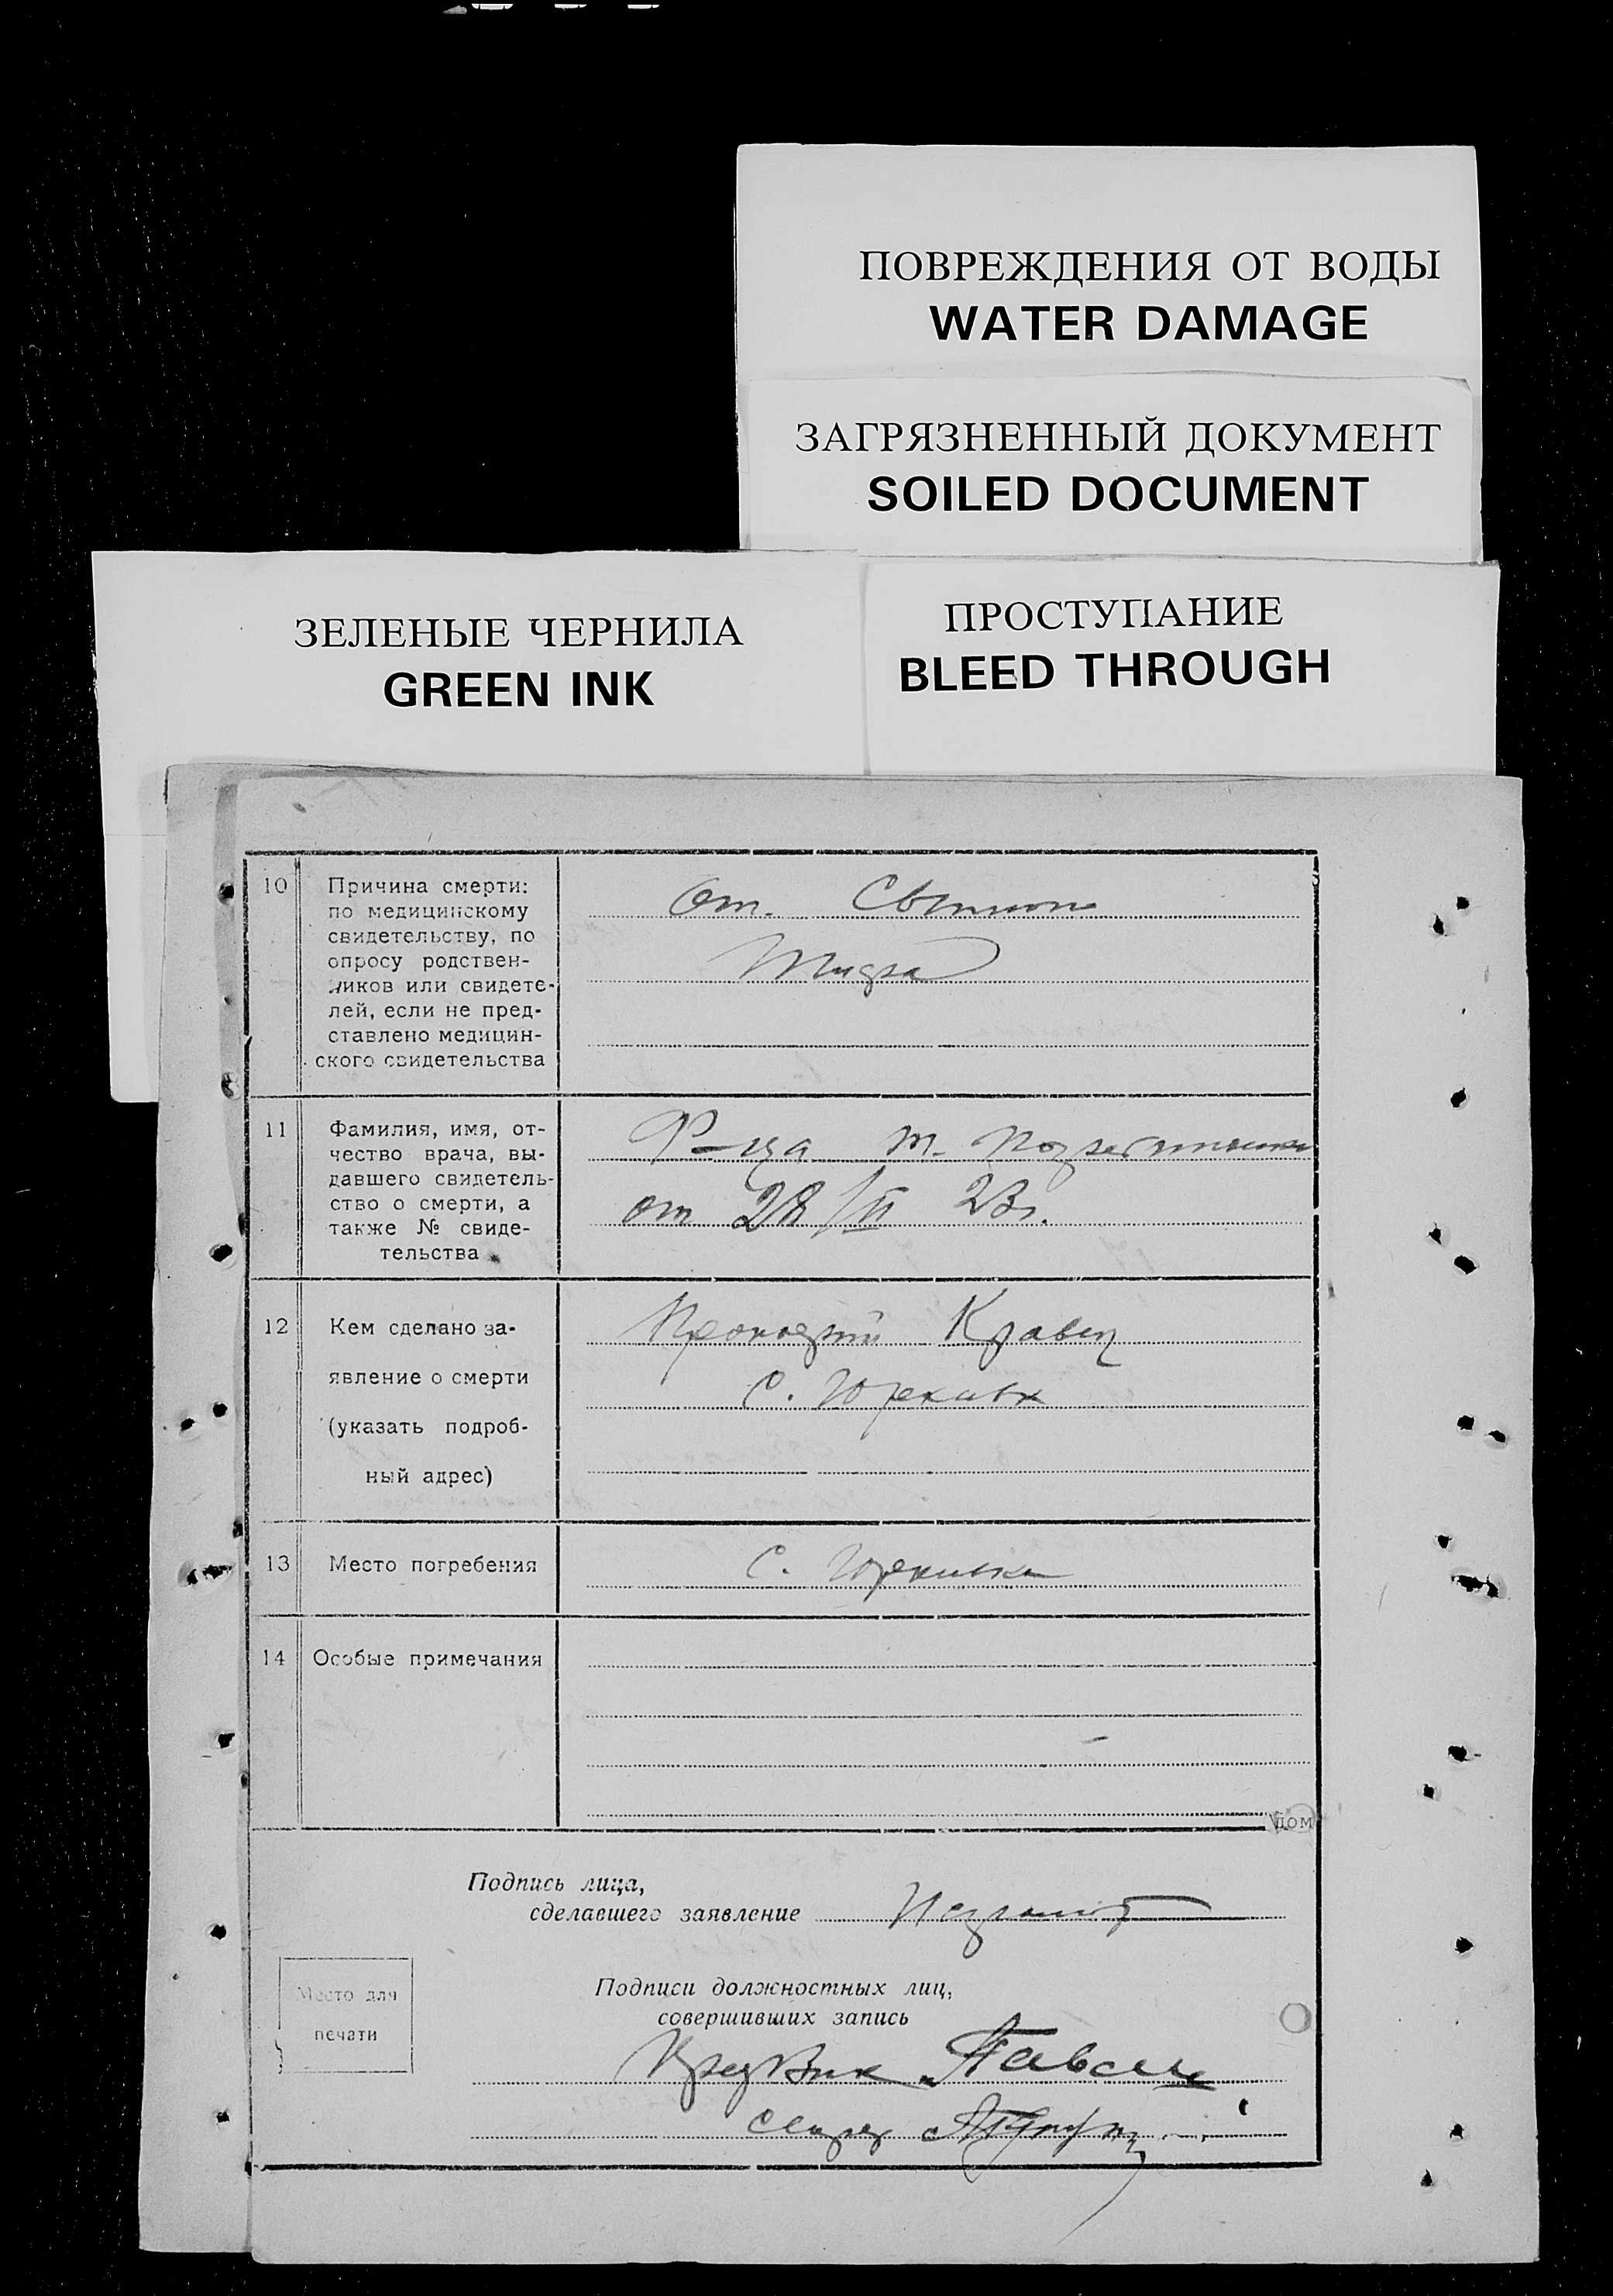 ПОВРЕЖДЕНИЯ ОТ ВОДЫ
WATER DAMAGE
ЗАГРЯЗНЕННЫЙ ДОКУМЕНТ
SOILED DOCUMENT
ЗЕЛЕНЫЕ ЧЕРНИЛА
GREEN INK
ПРОСТУПАНИЕ
BLEED THROUGH
10 Причина смерти:
по медицинскому
свидетельству, по
опросу родствен-
ников или свидете-
лей, если не пред-
ставлено медицин-
ского свидетельства
От
Тифа
11 Фамилия, имя, от-
чество врача, вы-
давшего свидетель-
ство о смерти, а
также № свиде-
тельства
от 28/II 23г.
12 Кем сделано за-
явление о смерти
(указать подроб-
ный адрес)
Кравец
С.
13 Место погребения
С.
14 Особые примечания
ДОМ
Подпись лица,
сделавшего заявление
Неграмот
Место для
печати
Подписи должностных лиц,
совершивших запись
ПредВик
Секрет